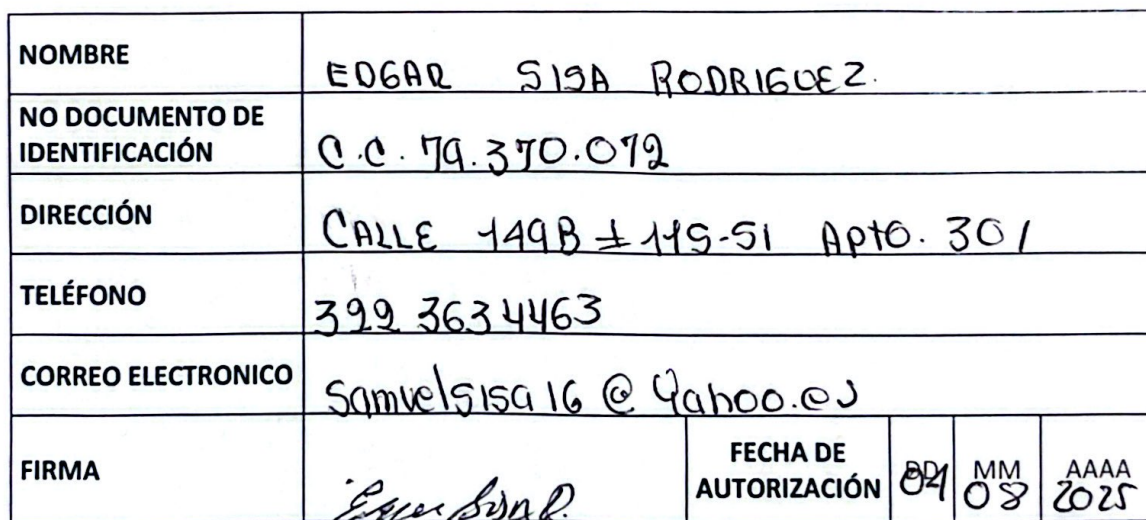 NOMBRE
EDGAR SISA RODRIGUEZ.
NO DOCUMENTO DE
IDENTIFICACIÓN
C.C. 79.370.072
DIRECCIÓN
CALLE 149B # 115-51 Apto. 301
TELÉFONO
322 363 4463
CORREO ELECTRONICO
Samuelsisa16@yahoo.es
FIRMA
FECHA DE
AUTORIZACIÓN
DD MM AAAA
08 2025